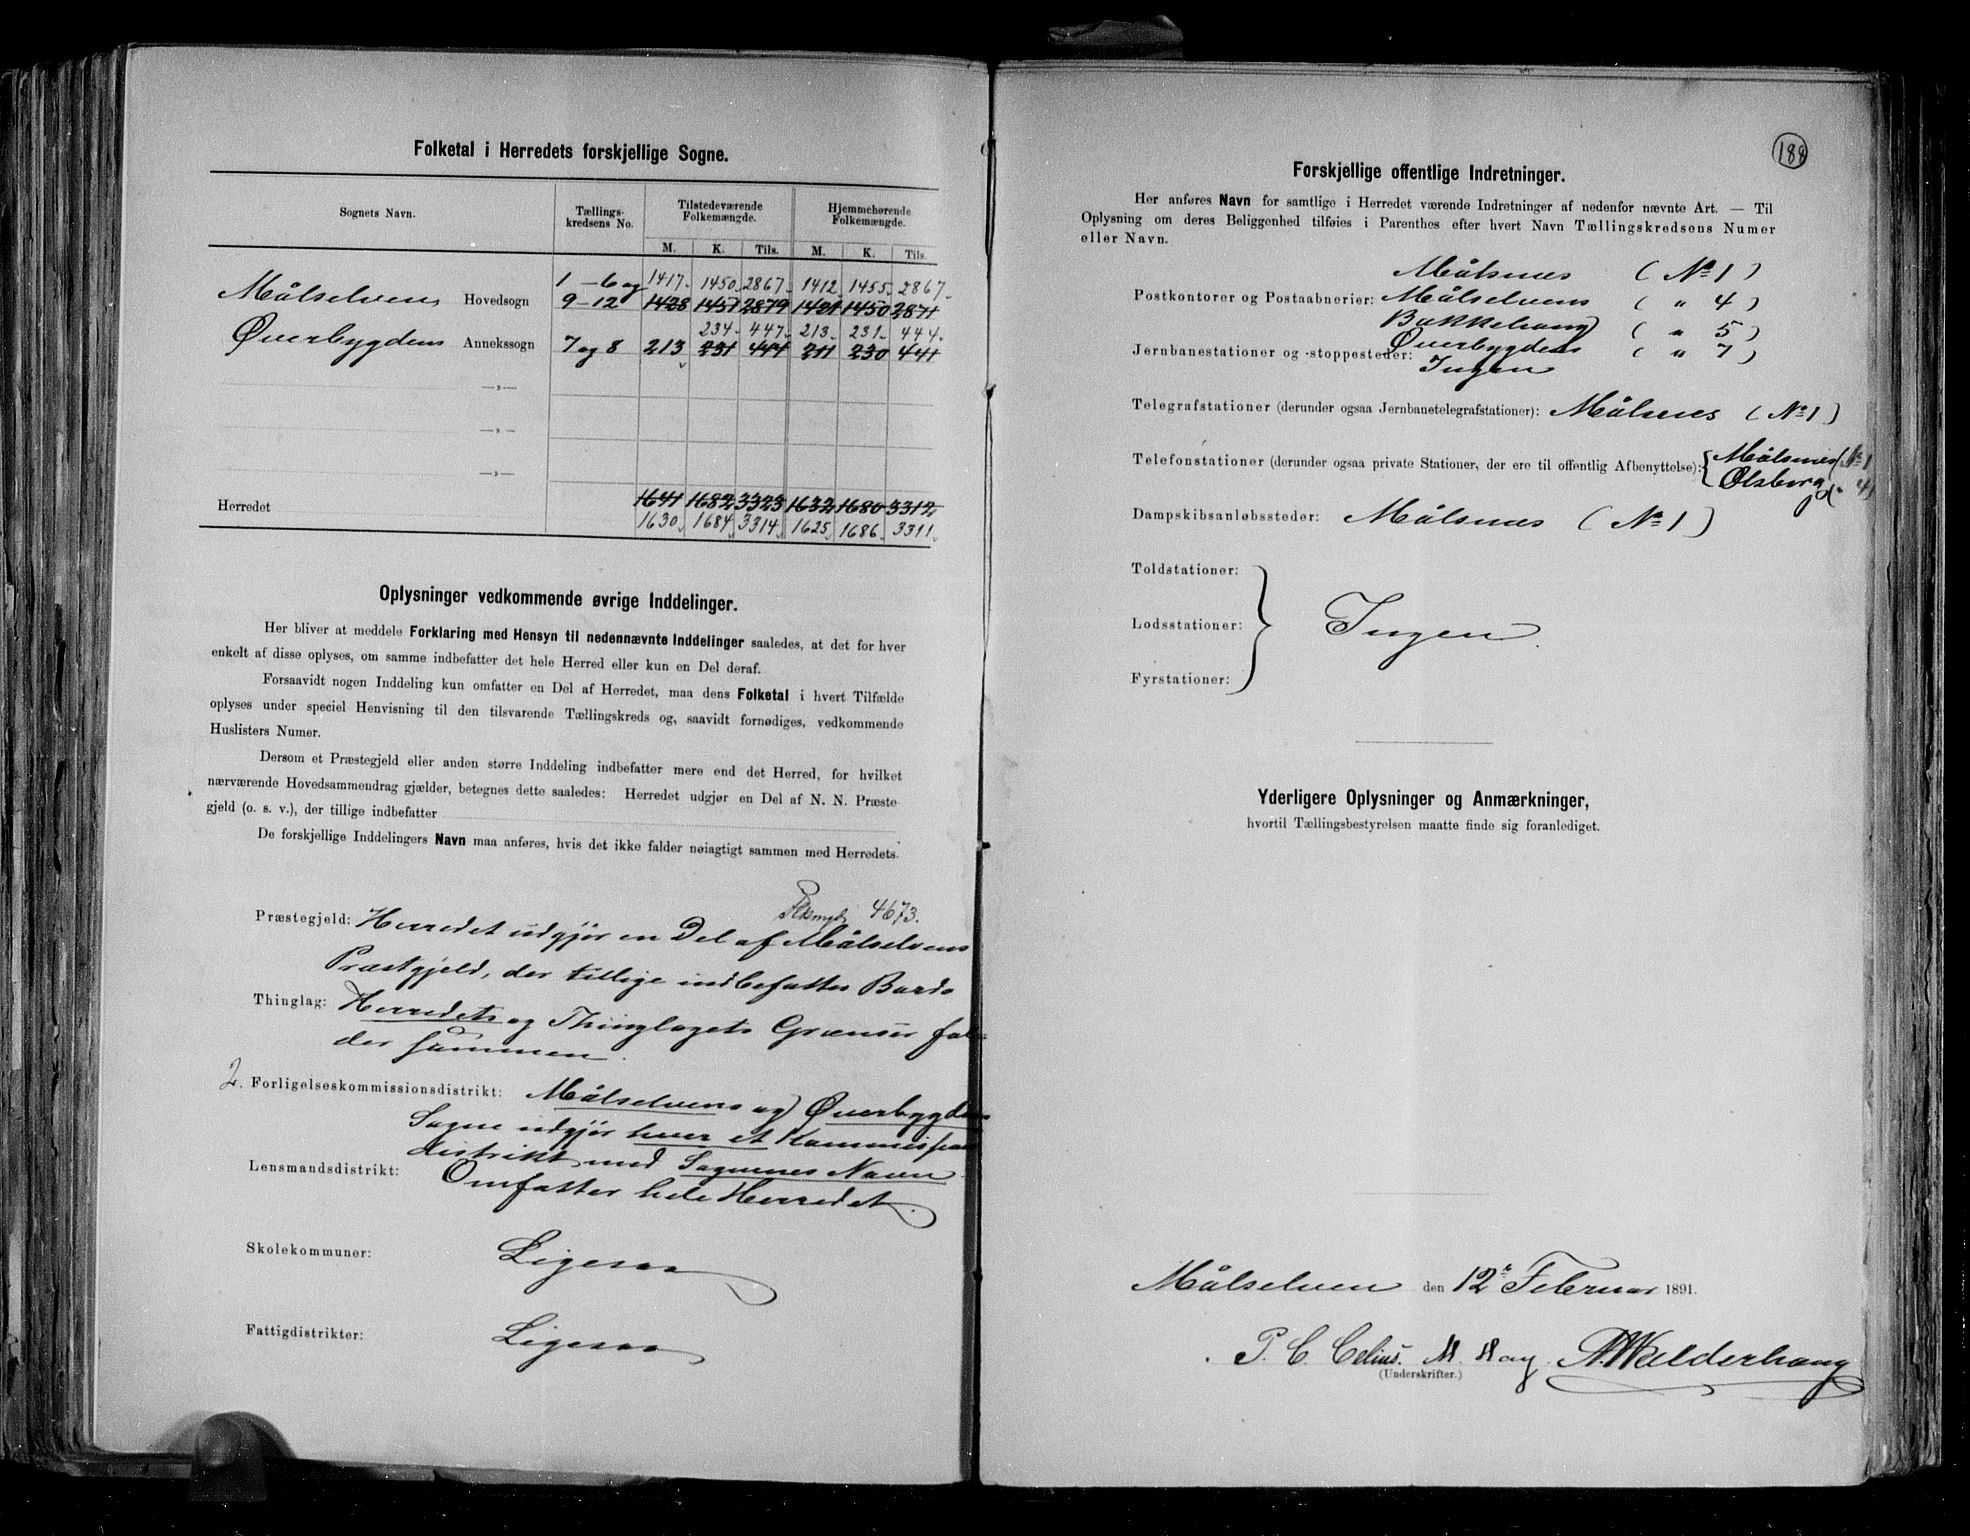 Folketal i Herredets forskjellige Sogne.
Sognets Navn. Tællings- kredsens No. Tilstedeværende Folkemængde. Hjemmehørende Folkemængde.
M. K. Tils. M. K. Tils.
1-6 og 1417. 1450. 2867. 1412 1455. 2867.
Målselvens Hovedsogn 9-12 1428 1451 2879 1421 1450 2871
234. 447. 213. 231. 444.
Øverbygdens Annekssogn 7 og 8 213 231 444 211 230 441
—„—
—„—
—„—
Herredet 1641 1682 3323 1632 1680 3312
1630. 1684 3314 1625 1686. 3311.
Oplysninger vedkommende øvrige Inddelinger.
Her bliver at meddele Forklaring med Hensyn til nedennævnte Inddelinger saaledes, at det for hver
enkelt af disse oplyses, om samme indbefatter det hele Herred eller kun en Del deraf.
Forsaavidt nogen Inddeling kun omfatter en Del af Herredet, maa dens Folketal i hvert Tilfælde
oplyses under speciel Henvisning til den tilsvarende Tællingskreds og, saavidt fornødiges, vedkommende
Huslisters Numer.
Dersom et Præstegjeld eller anden større Inddeling indbefatter mere end det Herred, for hvilket
nærværende Hovedsammendrag gjælder, betegnes dette saaledes: Herredet udgjør en Del af N. N. Præste-
gjeld (o. s. v.), der tillige indbefatter
De forskjellige Inddelingers Navn maa anføres, hvis det ikke falder nøiagtigt sammen med Herredets.
4673.
Præstegjeld: Herredet udgjør en Del af Målselvens
Præstgjeld, der tillige indbefatter Bardo
Thinglag: Herredets og Thinglagets Grænser fal-
der sammen.
2. Forligelseskommissionsdistrikt: Målselvens og Øverbygdens
Sogne udgjør hver et Kommissions
distrikt med Sognenes Navn
Lensmandsdistrikt: Omfatter hele Herredet.
Skolekommuner: Ligesaa
Fattigdistrikter: Ligesaa
188
Forskjellige offentlige Indretninger.
Her anføres Navn for samtlige i Herredet værende Indretninger af nedenfor nævnte Art. — Til
Oplysning om deres Beliggenhed tilføies i Parenthes efter hvert Navn Tællingskredsens Numer
eller Navn.
Målsnes (No 1)
Postkontorer og Postaabnerier: Målselvens („ 4)
Bakkehaug („ 5)
Øverbygdens („ 7)
Jernbanestationer og -stoppesteder: Ingen
Telegrafstationer (derunder ogsaa Jernbanetelegrafstationer): Målsnes (No 1)
Telefonstationer (derunder ogsaa private Stationer, der ere til offentlig Afbenyttelse): { Målsnes (No 1
Olsborg („ 4)
Dampskibsanløbssteder: Målsnes (No 1)
Toldstationer:
Lodsstationer: } Ingen.
Fyrstationer:
Yderligere Oplysninger og Anmærkninger,
hvortil Tællingsbestyrelsen maatte finde sig foranlediget.
Målselven den 12te Februar 1891.
P. C. Celius. M. Hay.
(Underskrifter.)